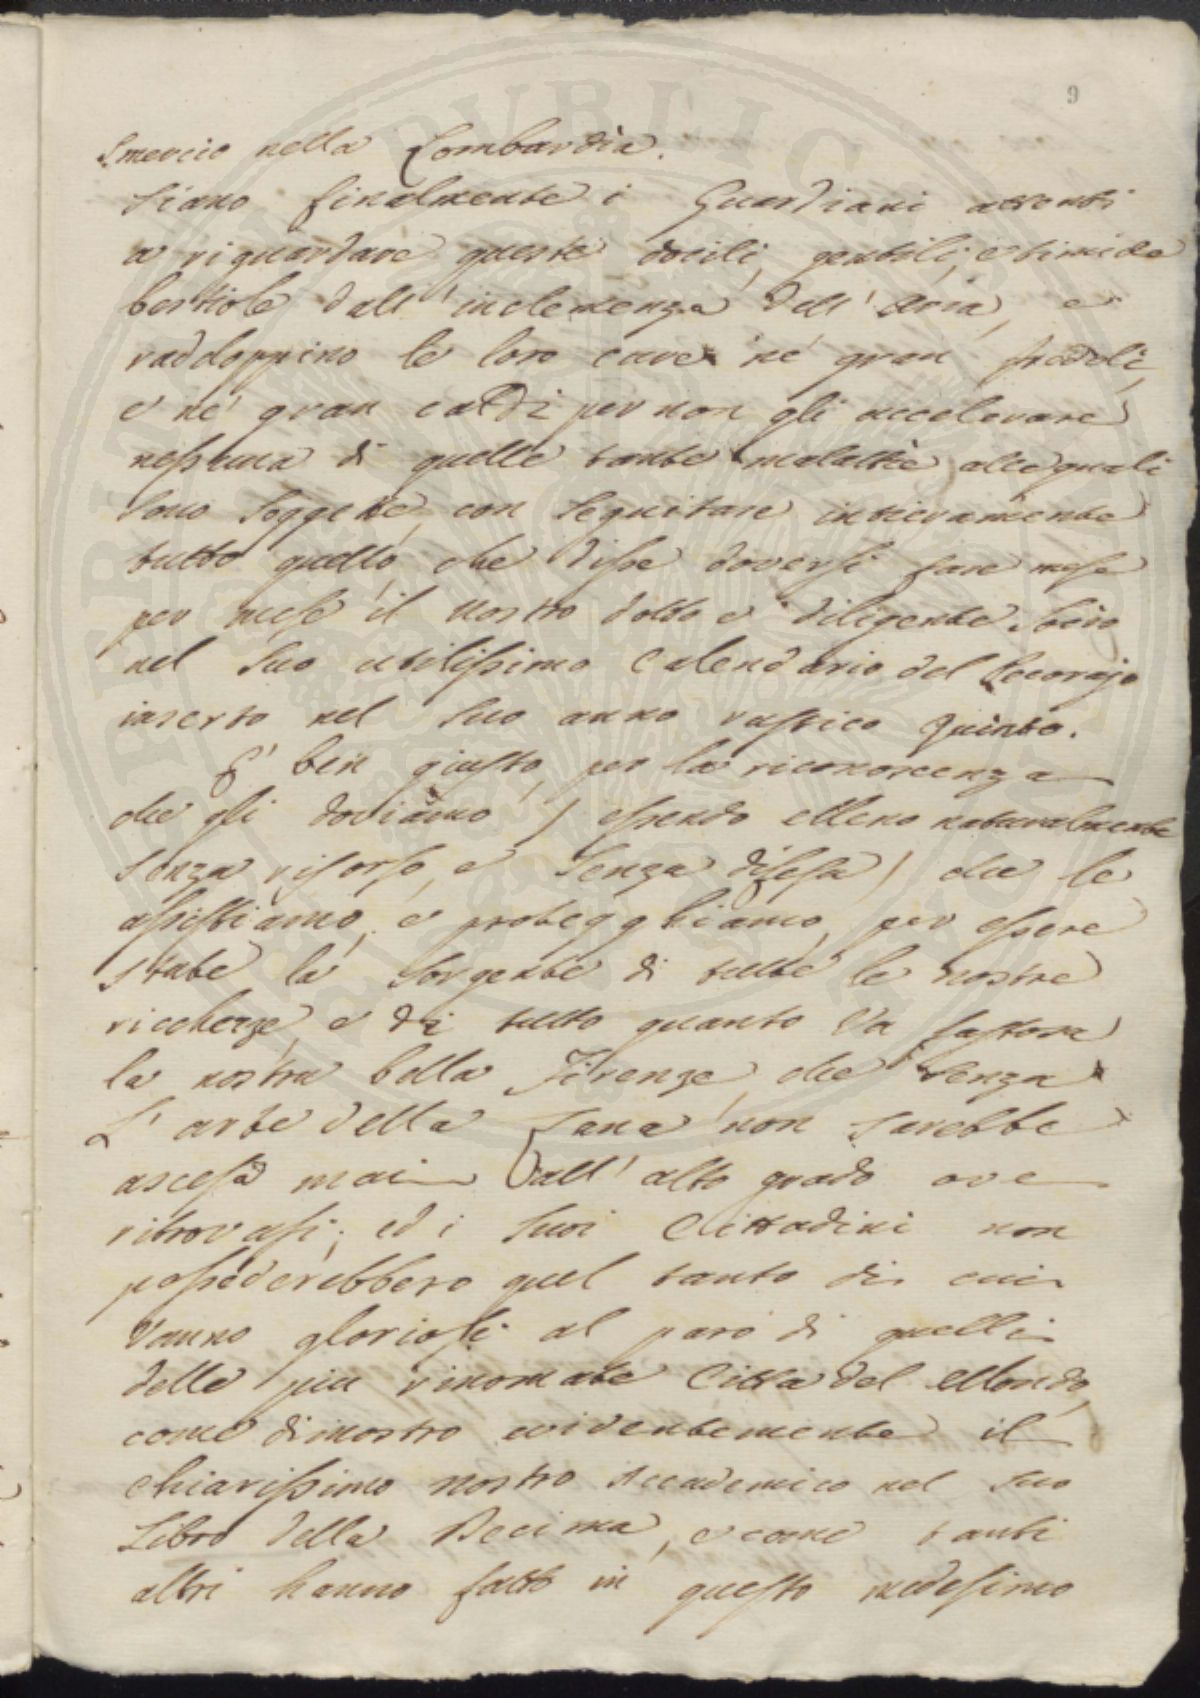 9
smercio nella Lombardia.
Siano finalmente i Guardiani attenti
a riguardare queste docili, gentili, e timide
bestiole dall' inclemenza dell' Aria, e
raddoppino le loro cure né gran freddi,
e né gran caldi per non gli accelerare
nessuna di quelle tante malattie alle quali
sono soggette, con seguitare intieramente
tutto quello, che disse doversi fare mese
per mese il nostro dotto e diligente
nel suo utilissimo Calendario del Pecorajo
inserto nel suo anno rustico Quinto.
E' ben giusto, per la riconoscenza
che gli dobiamo, / essendo elleno naturalmente
senza risorse, e senza difesa / che le
assistiamo, e protegghiamo, per essere
state la sorgente di tutte le nostre
ricchezze, e di tutto quanto va fastosa
la nostra bella Firenze, che senza
L' arte della Lana non sarebbe
ascesa mai all' alto grado ove
ritrovasi; ed i suoi Cittadini non
possederebbero quel tanto di cui
vanno gloriosi al paro di quelli
delle più rinomate Città del Mondo,
come dimostrò evidentemente il
chiarissimo nostro Accademico nel suo
Libro della Decima, e come tanti
altri hanno fatto in questo medesimo
PVBLICA